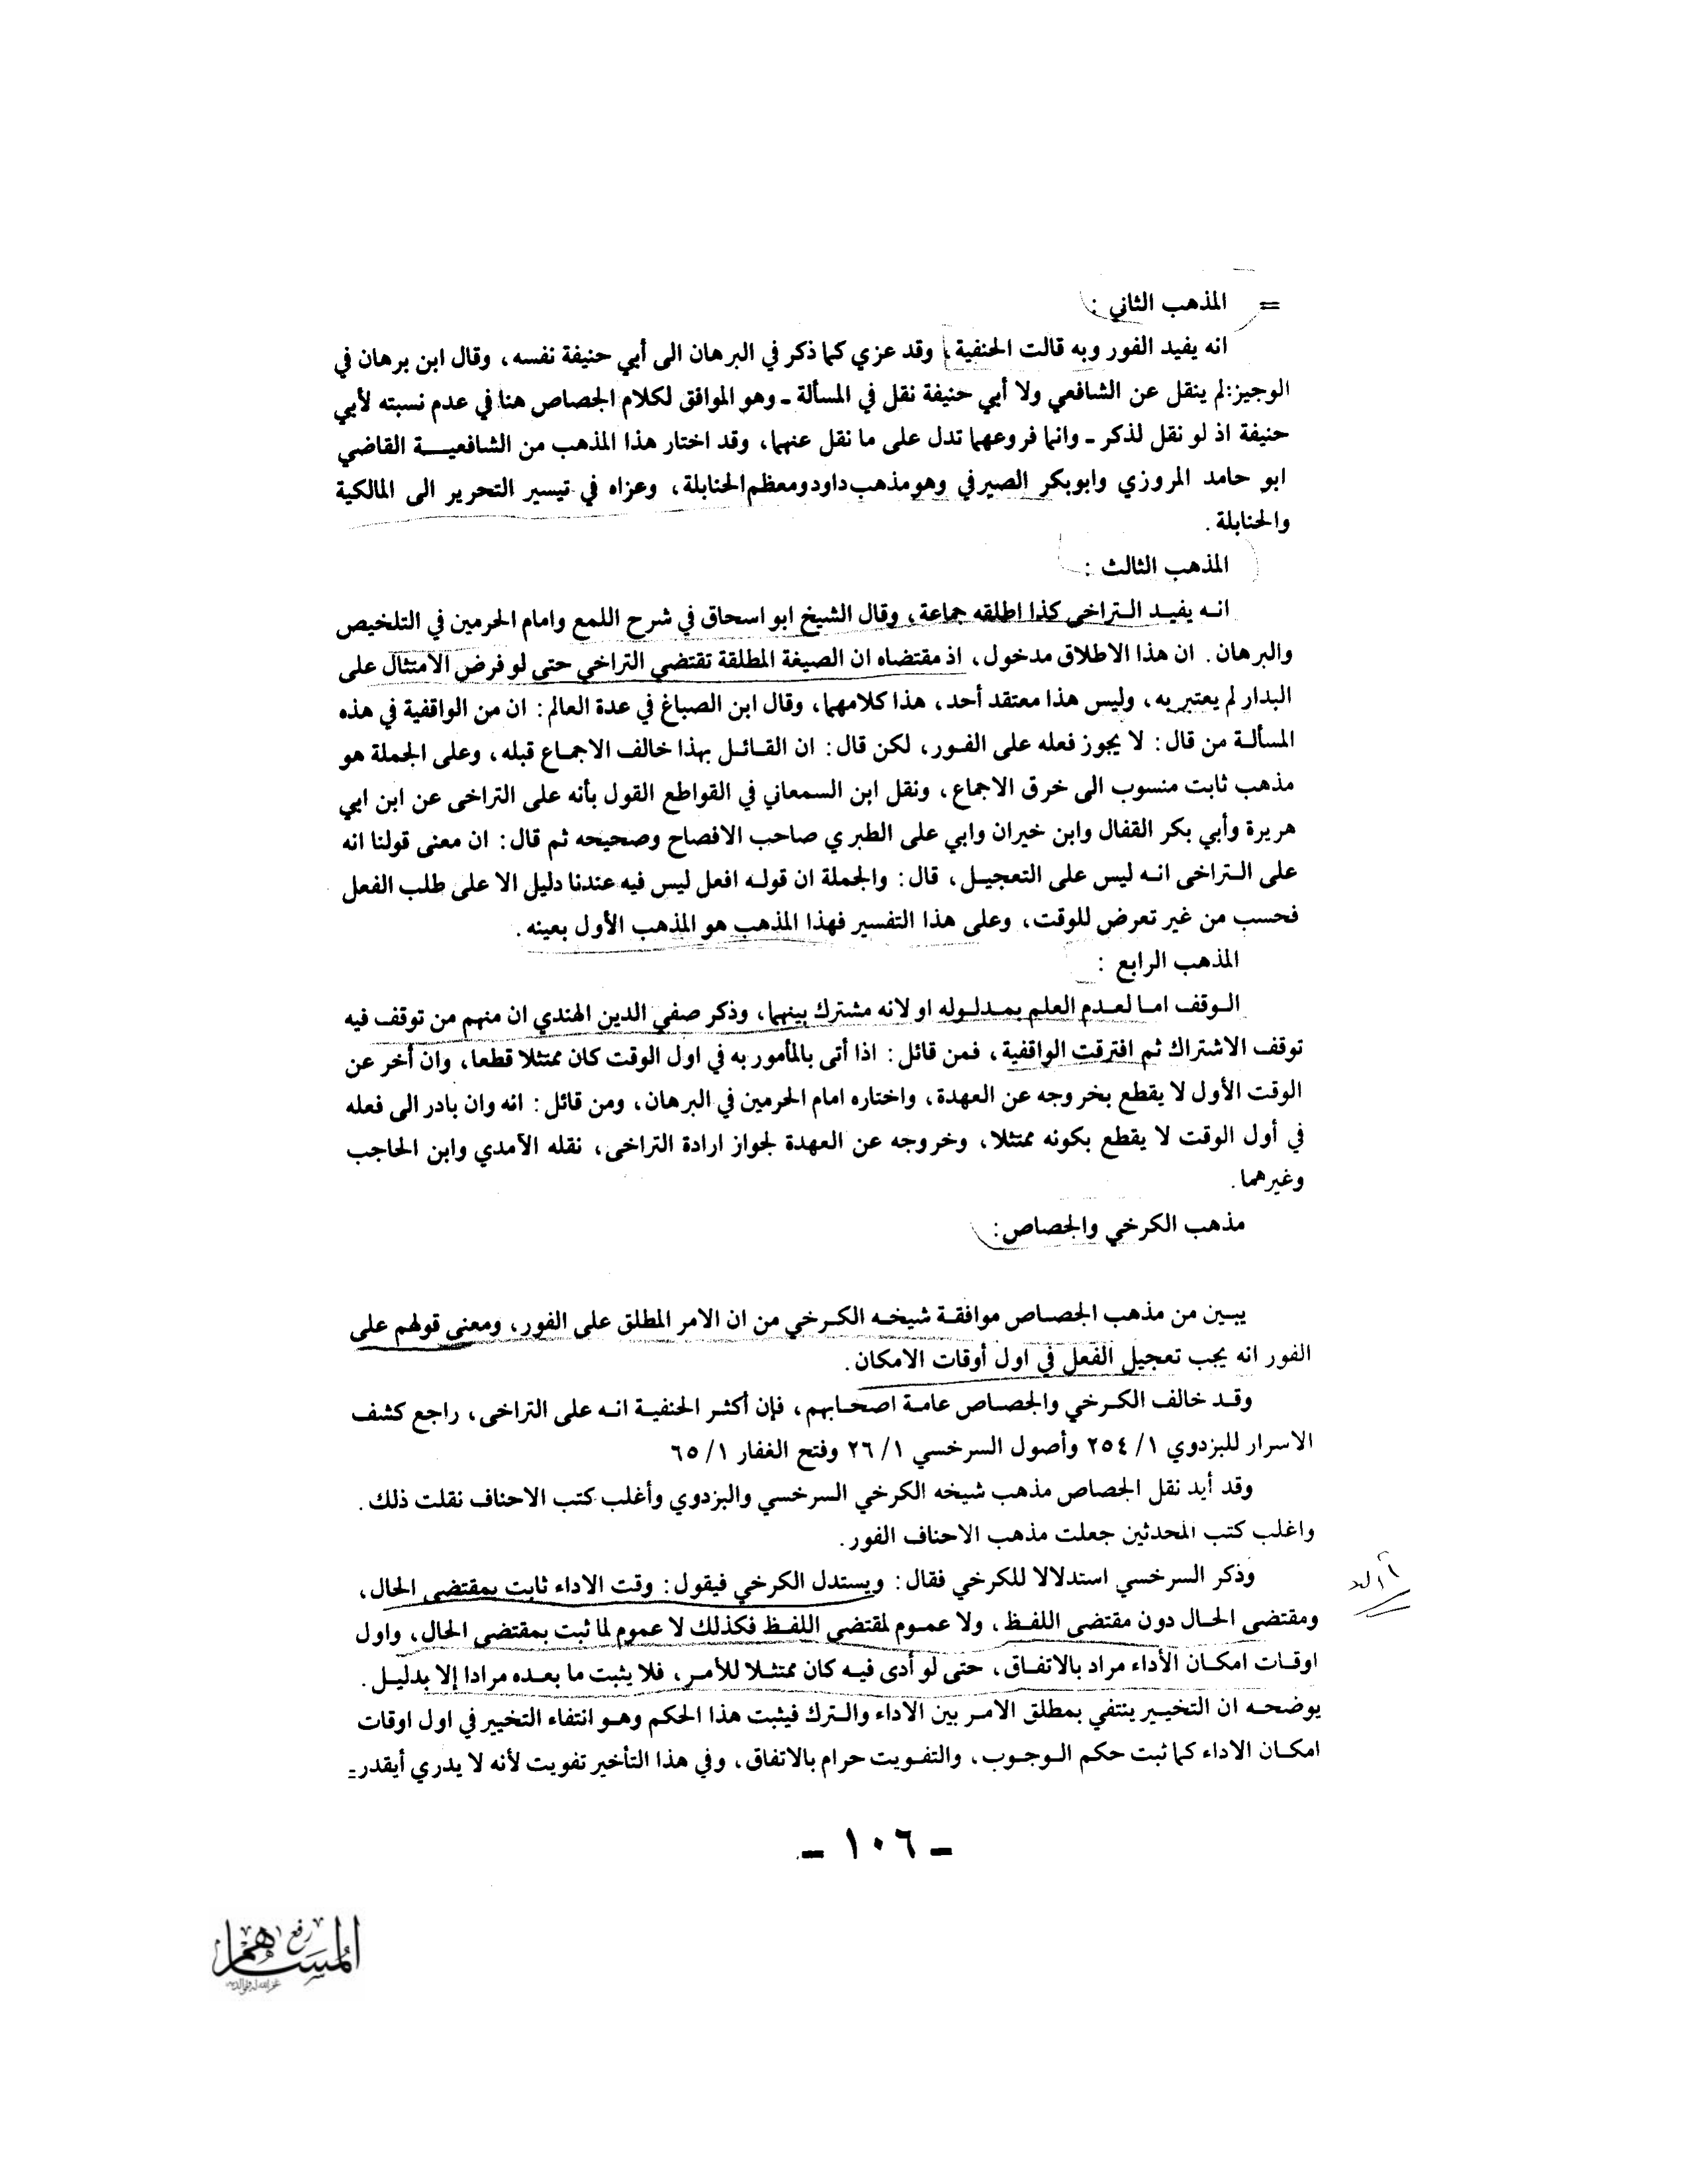 = المذهب الثاني :
انه يفيد الفور وبه قالت الحنفية، وقد عزي كما ذكر في البرهان الى أبي حنيفة نفسه، وقال ابن برهان في
الوجيز: لم ينقل عن الشافعي ولا أبي حنيفة نقل في المسألة ـ وهو الموافق لكلام الجصاص هنا في عدم نسبته لأبي
حنيفة اذ لو نقل لذكر ـ وانما فروعهما تدل على ما نقل عنهما، وقد اختار هذا المذهب من الشافعيـــة القاضي
ابو حامد المروزي وابوبكر الصيرفي وهو مذهب داود ومعظم الحنابلة، وعزاه في تيسير التحرير الى المالكية
والحنابلة .
المذهب الثالث :
انـه يفيـد الـتراخى كذا اطلقه جماعة، وقال الشيخ ابو اسحاق في شرح اللمع وامام الحرمين في التلخيص
والبرهان. ان هذا الاطلاق مدخول، اذ مقتضاه ان الصيغة المطلقة تقتضي التراخي حتى لو فرض الامتثال على
البدار لم يعتبر به، وليس هذا معتقد أحد، هذا كلامهما، وقال ابن الصباغ في عدة العالم : ان من الواقفية في هذه
المسألـة من قال : لا يجوز فعله على الفـور، لكن قال : ان القـائـل بهذا خالف الاجمـاع قبله، وعلى الجملة هو
مذهب ثابت منسوب الى خرق الاجماع، ونقل ابن السمعاني في القواطع القول بأنه على التراخى عن ابن ابي
هريرة وأبي بكر القفال وابن خيران وابي على الطبري صاحب الافصاح وصحيحه ثم قال : ان معنى قولنا انه
على الـتراخى انـه ليس على التعجيـل، قال : والجملة ان قولـه افعل ليس فيه عندنا دليل الا على طلب الفعل
فحسب من غير تعرض للوقت، وعلى هذا التفسير فهذا المذهب هو المذهب الأول بعينه .
المذهب الرابع :
الـوقف امـا لعـدم العلم بمـدلـوله او لانه مشترك بينهما، وذكر صفي الدين الهندي ان منهم من توقف فيه
توقف الاشتراك ثم افترقت الواقفية، فمن قائل : اذا أتى بالمأمور به في اول الوقت كان ممتثلا قطعا، وان أخر عن
الوقت الأول لا يقطع بخروجه عن العهدة، واختاره امام الحرمين في البرهان، ومن قائل : انه وان بادر الى فعله
في أول الوقت لا يقطع بكونه ممتثلا، وخروجه عن العهدة لجواز ارادة التراخى، نقله الآمدي وابن الحاجب
وغيرهما .
مذهب الكرخي والجصاص :
يبـين من مذهب الجصـاص موافقـة شيخـه الكـرخي من ان الامر المطلق على الفور، ومعنى قولهم على
الفور انه يجب تعجيل الفعل في اول أوقات الامكان .
وقـد خالف الكـرخي والجصـاص عامـة اصحـابهم، فإن أكثر الحنفيـة انـه على التراخى، راجع كشف
الاسرار للبزدوي ١/ ٢٥٤ وأصول السرخسي ١/ ٢٦ وفتح الغفار ١/ ٦٥
وقد أيد نقل الجصاص مذهب شيخه الكرخي السرخسي والبزدوي وأغلب كتب الاحناف نقلت ذلك .
واغلب كتب المحدثين جعلت مذهب الاحناف الفور .
وذكر السرخسي استدلالا للكرخي فقال : ويستدل الكرخي فيقول : وقت الاداء ثابت بمقتضى الحال،
ومقتضى الحـال دون مقتضى اللفـظ، ولا عمـوم لمقتضى اللفـظ فكذلك لا عموم لما ثبت بمقتضى الحال، واول
اوقـات امكـان الأداء مراد بالاتفـاق، حتى لو أدى فيـه كان ممتثـلا للأمـر، فلا يثبت ما بعـده مرادا إلا بدليـل .
يوضحـه ان التخيـير ينتفي بمطلق الامـر بين الاداء والـترك فيثبت هذا الحكم وهـو انتفاء التخيير في اول اوقات
امكـان الاداء كما ثبت حكم الـوجـوب، والتفـويت حرام بالاتفاق، وفي هذا التأخير تفويت لأنه لا يدري أيقدر =
ـ ١٠٦ ـ
المساهم